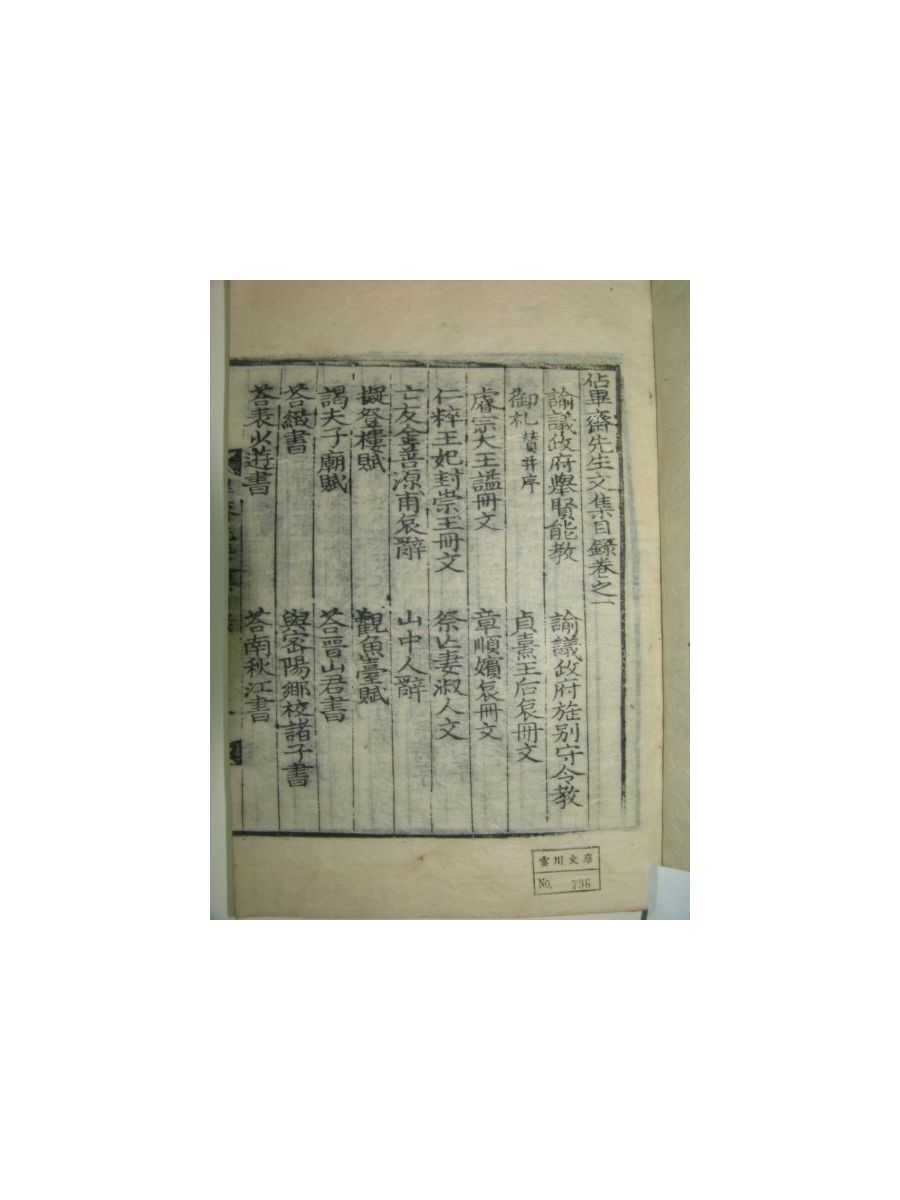 佔畢齋先生文集目録卷之一
諭議政府舉賢能教 諭議政府旌别守令教
御札贊并序 貞熹王后哀冊文
睿宗大王諡冊文 章順嬪哀冊文
仁粹王妃封崇玉冊文 祭亡妻淑人文
亡友金善源甫哀辭 山中人辭
擬登樓賦 觀魚臺賦
謁夫子廟賦 荅晉山君書
荅緻書 與密陽鄉校諸子書
荅表少遊書 荅南秋江書
雲川文庫
No. 796